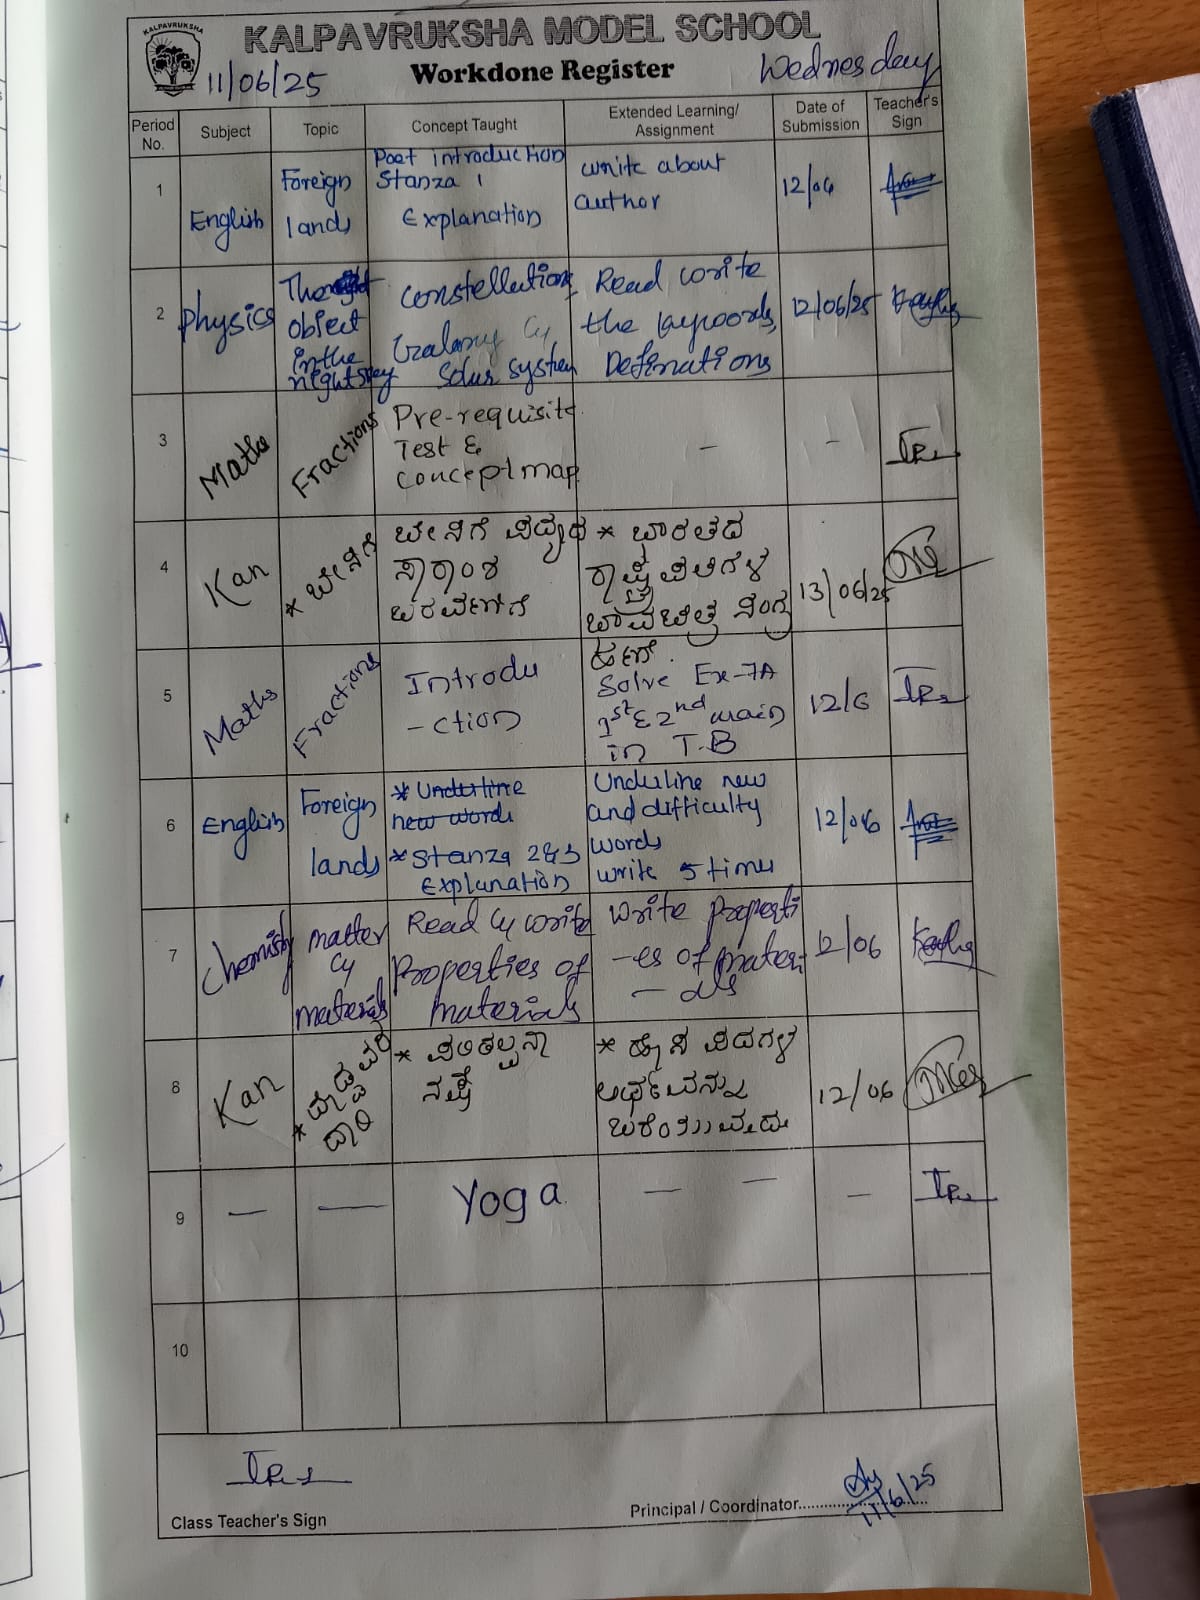 KALPAVRUKSHA
KALPAVRUKSHA MODEL SCHOOL
11/06/25 Workdone Register Wednesday
Period No. Subject Topic Concept Taught Extended Learning/ Assignment Date of Submission Teacher's Sign
1 English Foreign lands
Poet introduction
Stanza 1
Explanation
write about
author
12/06
2 Physics
The
object
in the
night sky
Constellation,
Galaxy &
Solar system
Read write
the keywords,
Definations
12/06/25
3 Maths Fractions
Pre-requisite
Test &
concept map
-
-
4 Kan * ಬೇಸಿಗೆ
ಬೇಸಿಗೆ ಪದ್ಯದ
ಸಾರಾಂಶ
ಬರವಣಿಗೆ
* ಭಾರತದ
ರಾಷ್ಟ್ರಪತಿಗಳ
ಭಾವಚಿತ್ರ
13/06/25
5 Maths Fractions
Introdu
-ction
Solve Ex-7A
1st & 2nd main
in T.B
12/6
6 English Foreign lands
* Underline
new words
* Stanza 2&3
Explanation
Underline new
and difficulty
words
write 5 times
12/06
7 Chemistry
matter
&
materials
Read & write
Properties of
materials
Write Properti
-es of materi
- als
12/06
8 Kan
*
* ಪರಿಕಲ್ಪನಾ
ನಕ್ಷೆ
* ಪದಗಳ
ಅರ್ಥವನ್ನು
12/06
9 - - Yoga - - -
10
Class Teacher's Sign
Principal / Coordinator
11/6/25